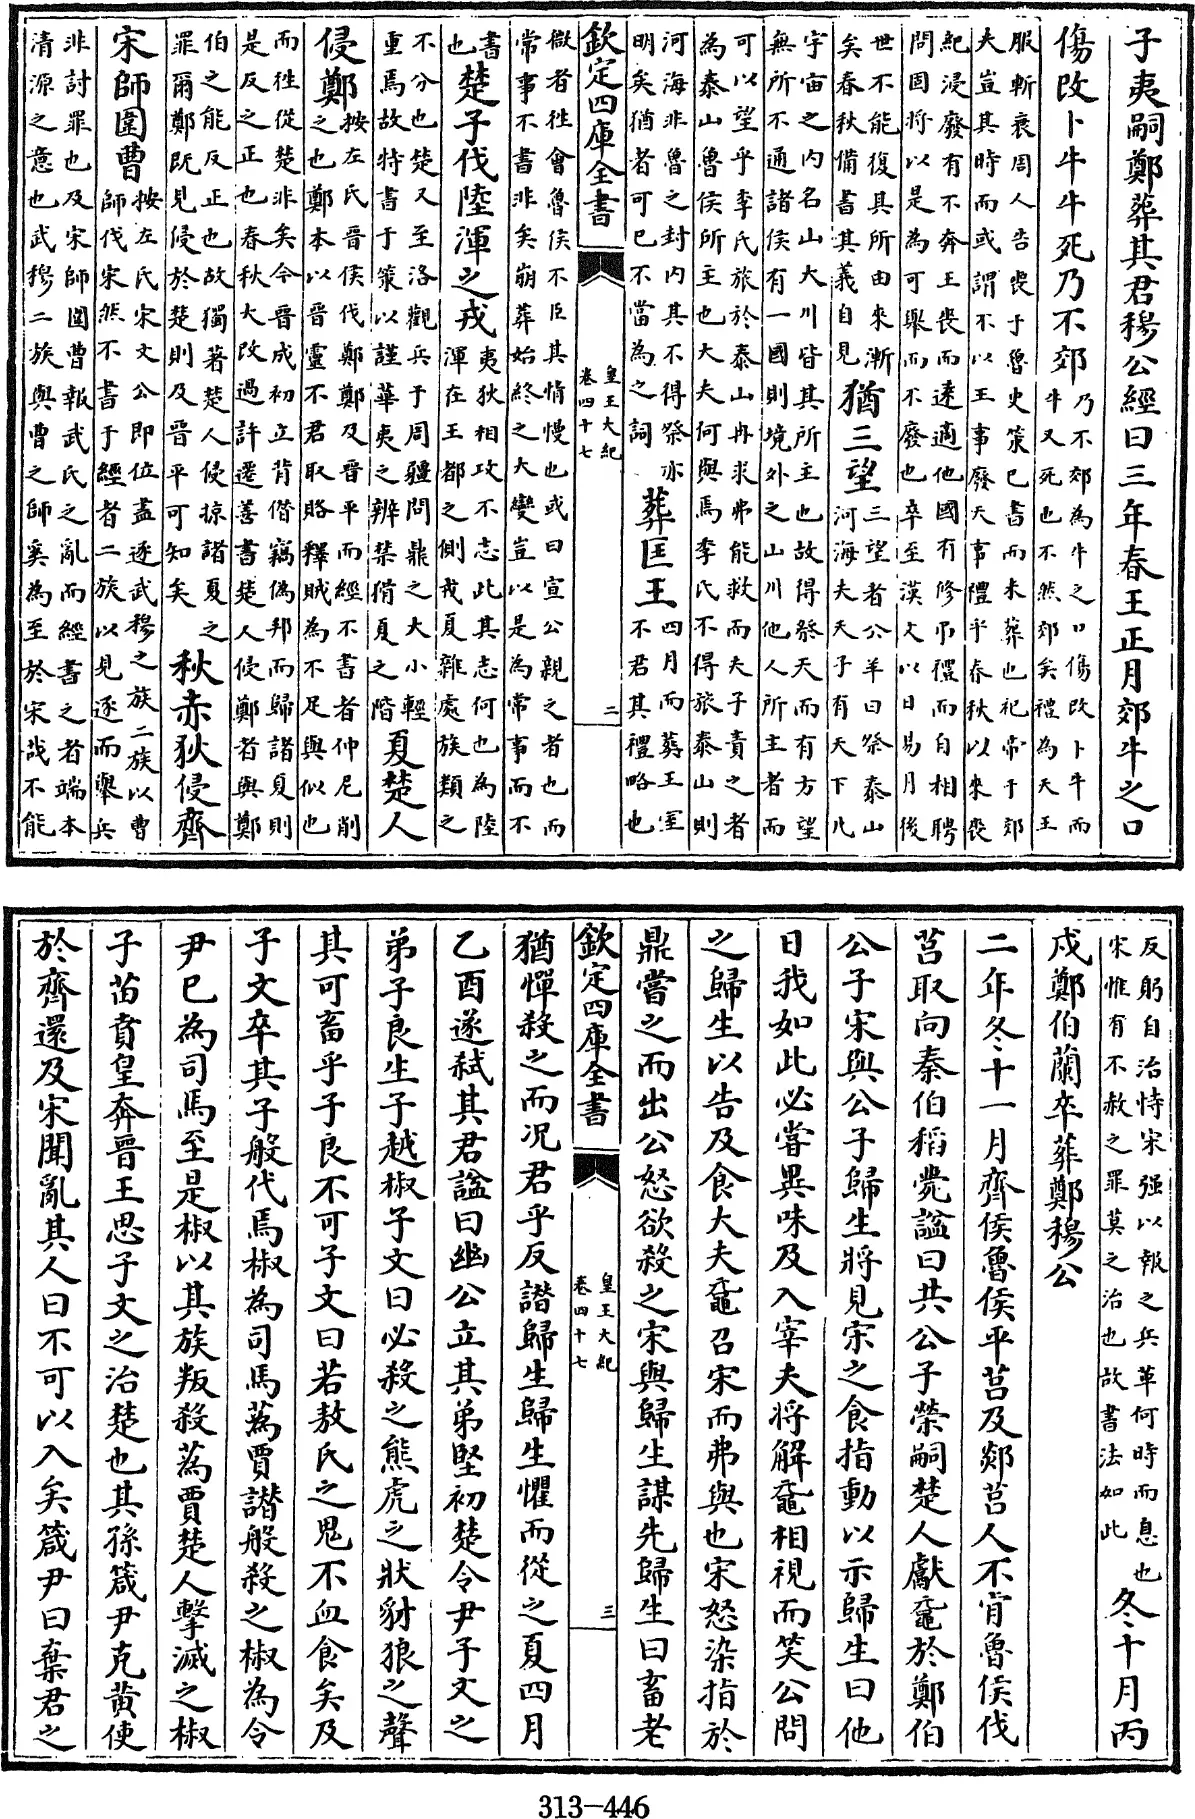 子夷嗣鄭葬其君穆公經曰三年春王正月郊牛之口
傷改卜牛牛死乃不郊
乃不郊為牛之口傷改卜牛而
牛又死也不然郊矣禮為天王
服斬衰周人告喪于魯史策已書而未葬也祀帝于郊
夫豈其時而或謂不以王事廢天事禮乎春秋以來喪
紀浸廢有不奔王喪而遠適他國有修弔禮而自相聘
問固將以是為可舉而不廢也卒至漢文以日易月後
世不能復其所由來漸
矣春秋備書其義自見
猶三望
三望者公羊曰祭泰山
河海夫天子有天下凡
宇宙之内名山大川皆其所主也故得祭天而有方望
無所不通諸侯有一國則境外之山川他人所主者而
可以望乎季氏旅於泰山冉求弗能救而夫子責之者
為泰山魯侯所主也大夫何與焉季氏不得旅泰山則
河海非魯之封内其不得祭亦
明矣猶者可已不當為之詞
葬匡王
四月而葬王室
不君其禮略也
欽定四庫全書
皇王大紀
卷四十七
二
微者往會魯侯不臣其情慢也或曰宣公親之者也而
常事不書非矣崩葬始終之大變豈以是為常事而不
書
也
楚子伐陸渾之戎
夷狄相攻不志此其志何也為陸
渾在王都之側戎夏雜處族類之
不分也楚又至洛觀兵于周疆問鼎之大小輕
重焉故特書于策以謹華夷之辨禁猾夏之階
夏楚人
侵鄭
按左氏晉侯伐鄭鄭及晉平而經不書者仲尼削
之也鄭本以晉靈不君取賂釋賊為不足與似也
而往從楚非矣今晉成初立背僣竊偽邦而歸諸夏則
是反之正也春秋大改過許遷善書楚人侵鄭者與鄭
伯之能反正也故獨著楚人侵掠諸夏之
罪爾鄭既見侵於楚則及晉平可知矣
秋赤狄侵齊
宋師圍曹
按左氏宋文公即位盡逐武穆之族二族以曹
師伐宋然不書于經者二族以見逐而舉兵
非討罪也及宋師圍曹報武氏之亂而經書之者端本
清源之意也武穆二族與曹之師奚為至於宋哉不能
反躬自治恃宋强以報之兵革何時而息也
宋惟有不赦之罪莫之治也故書法如此
冬十月丙
戌鄭伯蘭卒葬鄭穆公
二年冬十一月齊侯魯侯平莒及郯莒人不肯魯侯伐
莒取向秦伯稻薨諡曰共公子榮嗣楚人獻黿於鄭伯
公子宋與公子歸生將見宋之食指動以示歸生曰他
日我如此必嘗異味及入宰夫將解黿相視而笑公問
之歸生以告及食大夫黿召宋而弗與也宋怒染指於
鼎嘗之而出公怒欲殺之宋與歸生謀先歸生曰畜老
欽定四庫全書
皇王大紀
卷四十七
三
猶憚殺之而况君乎反譖歸生歸生懼而從之夏四月
乙酉遂弑其君諡曰幽公立其弟堅初楚令尹子文之
弟子良生子越椒子文曰必殺之熊虎之狀豺狼之聲
其可畜乎子良不可子文曰若敖氏之鬼不血食矣及
子文卒其子般代焉椒為司馬蒍賈譖般殺之椒為令
尹已為司馬至是椒以其族叛殺蒍賈楚人擊滅之椒
子苗賁皇奔晉王思子文之治楚也其孫箴尹克黄使
於齊還及宋聞亂其人曰不可以入矣箴尹曰棄君之
313-446